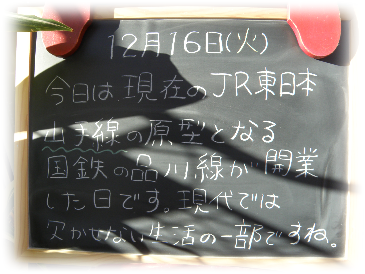 12月16日(火)
今日は現在のJR東日本
山手線の原型となる
国鉄の品川線が開業
した日です。現代では
欠かせない生活の一部ですね。